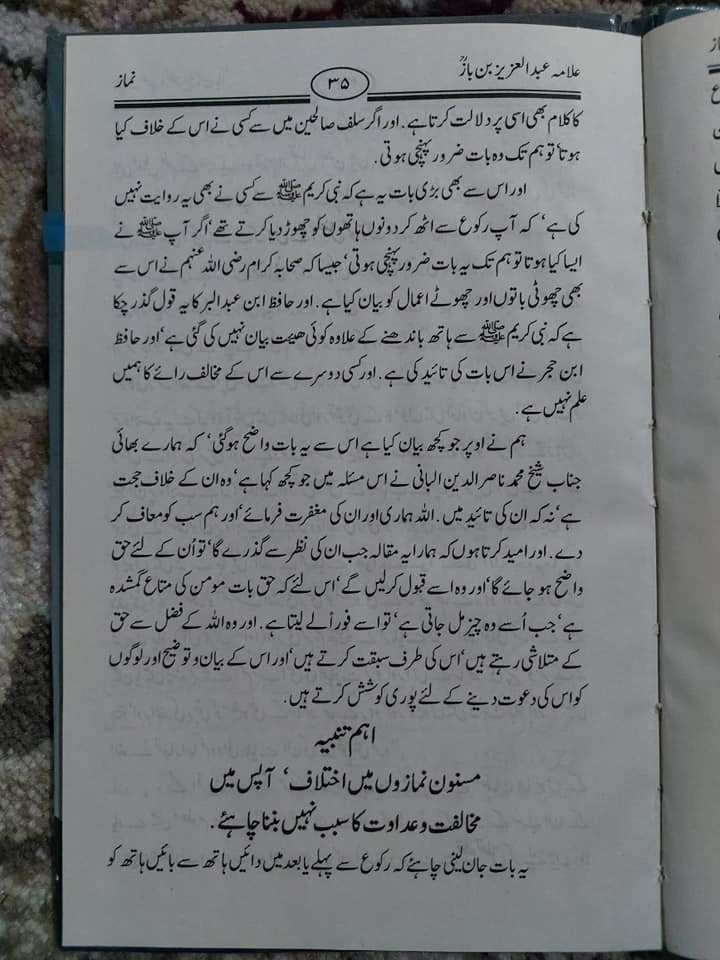 علامہ عبدالعزیز بن بازؒ
۳۵
نماز
کا کلام بھی اسی پر دلالت کرتا ہے۔ اور اگر سلف صالحین میں سے کسی نے اس کے خلاف کیا
ہوتا تو ہم تک وہ بات ضرور پہنچی ہوتی۔
اور اس سے بھی بڑی بات یہ ہے کہ نبی کریم ﷺ سے کسی نے بھی یہ روایت نہیں
کی ہے‘ کہ آپ رکوع سے اٹھ کر دونوں ہاتھوں کو چھوڑ دیا کرتے تھے‘ اگر آپ ﷺ نے
ایسا کیا ہوتا تو ہم تک یہ بات ضرور پہنچی ہوتی‘ جیسا کہ صحابہ کرام رضی اللہ عنہم نے اس سے
بھی چھوٹی باتوں اور چھوٹے اعمال کو بیان کیا ہے۔ اور حافظ ابن عبدالبر کا یہ قول گذر چکا
ہے کہ نبی کریم ﷺ سے ہاتھ باندھنے کے علاوہ کوئی ھیئت بیان نہیں کی گئی ہے‘ اور حافظ
ابن حجر نے اس بات کی تائید کی ہے۔ اور کسی دوسرے سے اس کے مخالف رائے کا ہمیں
علم نہیں ہے۔
ہم نے اوپر جو کچھ بیان کیا ہے اس سے یہ بات واضح ہو گئی‘ کہ ہمارے بھائی
جناب شیخ محمد ناصر الدین البانی نے اس مسئلہ میں جو کچھ کہا ہے‘ وہ ان کے خلاف حجت
ہے‘ نہ کہ ان کی تائید میں۔ اللہ ہماری اور ان کی مغفرت فرمائے‘ اور ہم سب کو معاف کر
دے۔ اور امید کرتا ہوں کہ ہمارا یہ مقالہ جب ان کی نظر سے گذرے گا‘ تو اُن کے لئے حق
واضح ہو جائے گا‘ اور وہ اسے قبول کر لیں گے‘ اس لئے کہ حق بات مومن کی متاع گمشدہ
ہے‘ جب اُسے وہ چیز مل جاتی ہے‘ تو اسے فوراً لے لیتا ہے۔ اور وہ اللہ کے فضل سے حق
کے متلاشی رہتے ہیں‘ اس کی طرف سبقت کرتے ہیں‘ اور اس کے بیان و توضیح اور لوگوں
کو اس کی دعوت دینے کے لئے پوری کوشش کرتے ہیں۔
اہم تنبیہ
مسنون نمازوں میں اختلاف‘ آپس میں
مخالفت و عداوت کا سبب نہیں بننا چاہئے۔
یہ بات جان لینی چاہئے کہ رکوع سے پہلے یا بعد میں دائیں ہاتھ سے بائیں ہاتھ کو